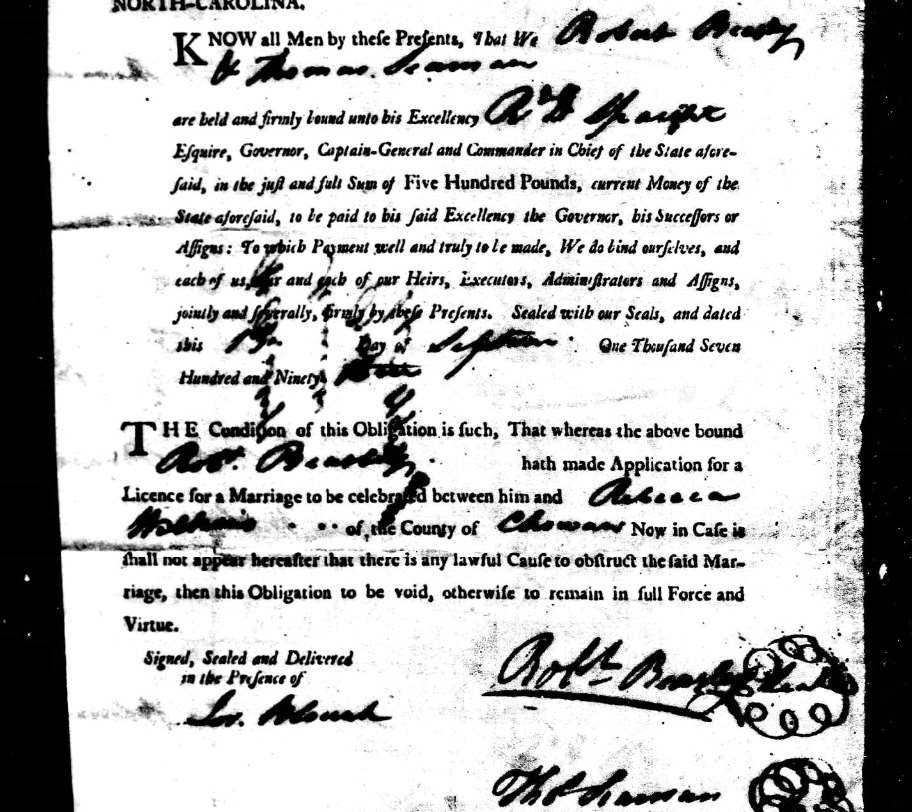 NORTH-CAROLINA.
KNOW all Men by theſe Preſents, That We Robert Beasley
& Thomas Seaman
are held and firmly bound unto his Excellency Rd D Spaight
Eſquire, Governor, Captain-General and Commander in Chief of the State afore-
ſaid, in the juſt and full Sum of Five Hundred Pounds, current Money of the
State aforeſaid, to be paid to his ſaid Excellency the Governor, his Succeſſors or
Aſſigns: To which Payment well and truly to be made, We do bind ourſelves, and
each of us, our and each of our Heirs, Executors, Adminiſtrators and Aſſigns,
jointly and ſeverally, firmly by theſe Preſents. Sealed with our Seals, and dated
this Day of Septem One Thouſand Seven
Hundred and Ninety
THE Condition of this Obligation is ſuch, That whereas the above bound
Robt. Beasley hath made Application for a
Licence for a Marriage to be celebrated between him and Rebecca
of the County of Chowan Now in Caſe it
ſhall not appear hereafter that there is any lawful Cauſe to obſtruct the ſaid Mar-
riage, then this Obligation to be void, otherwiſe to remain in full Force and
Virtue.
Signed, Sealed and Delivered
in the Preſence of
Robt Beasley Seal
Thos Seaman